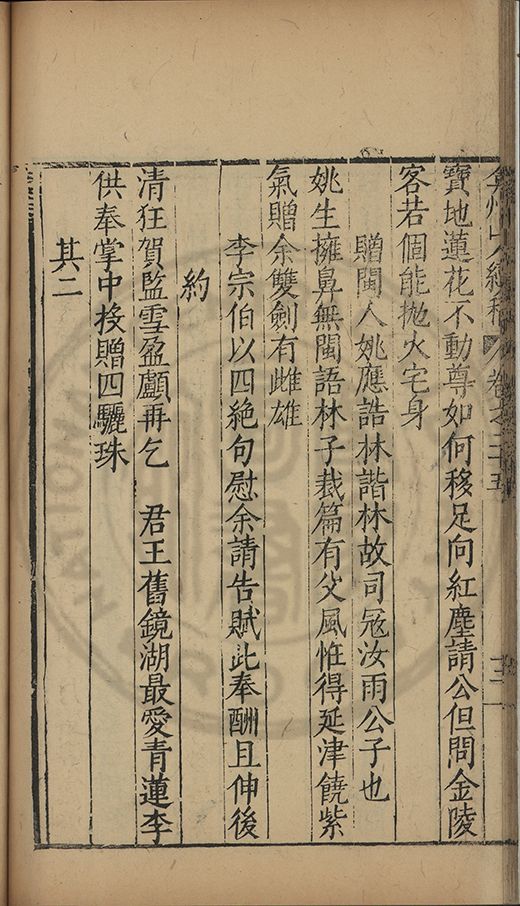 弇州山人續稿 卷之二十五 十二
寶地蓮花不動尊如何移足向紅塵請公但問金陵
客若個能拋火宅身
贈閩人姚應誥林諧林故司寇汝雨公子也
姚生擁鼻無閩語林子裁篇有父風惟得延津饒紫
氣贈余雙劍有雌雄
李宗伯以四絶句慰余請告賦此奉酬且伸後
約
清狂賀監雪盈顱再乞 君王舊鏡湖最愛青蓮李
供奉掌中投贈四驪珠
其二